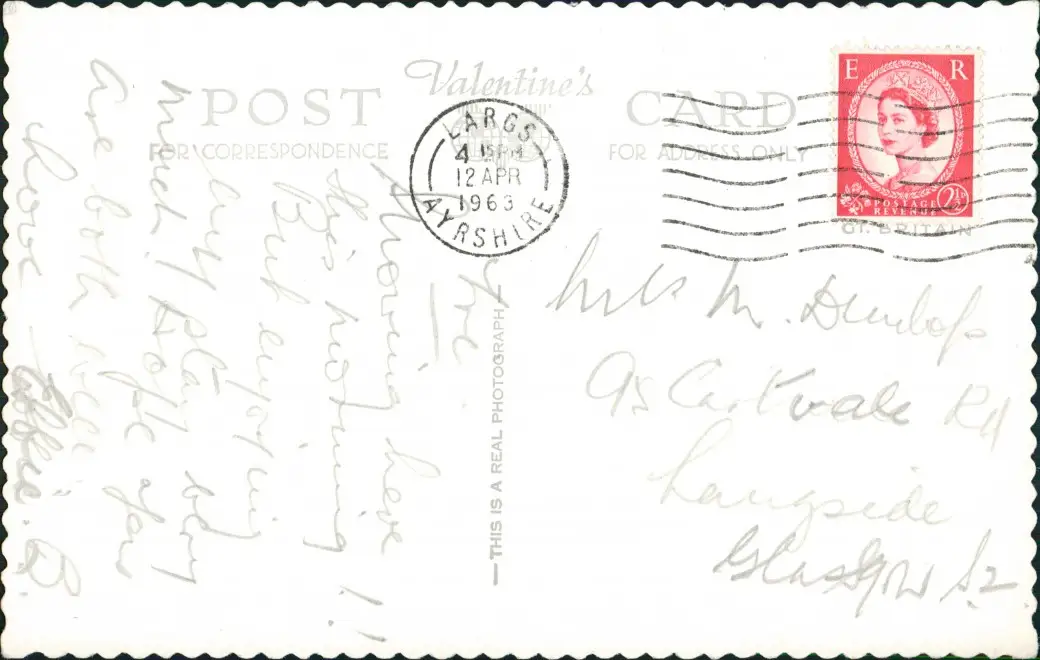 POST Valentine's CARD
FOR CORRESPONDENCE
FOR ADDRESS ONLY
LARGS
4 15 PM
12 APR
1963
AYRSHIRE
E R
POSTAGE
REVENUE
2½D
GT. BRITAIN
Snowing here
this morning !!
But enjoying
my stay very
much. Hope you
are both well
Love — Effie.
—THIS IS A REAL PHOTOGRAPH—
Mrs M. Dunlop
95 Cartvale Rd
Langside
Glasgow S.2.